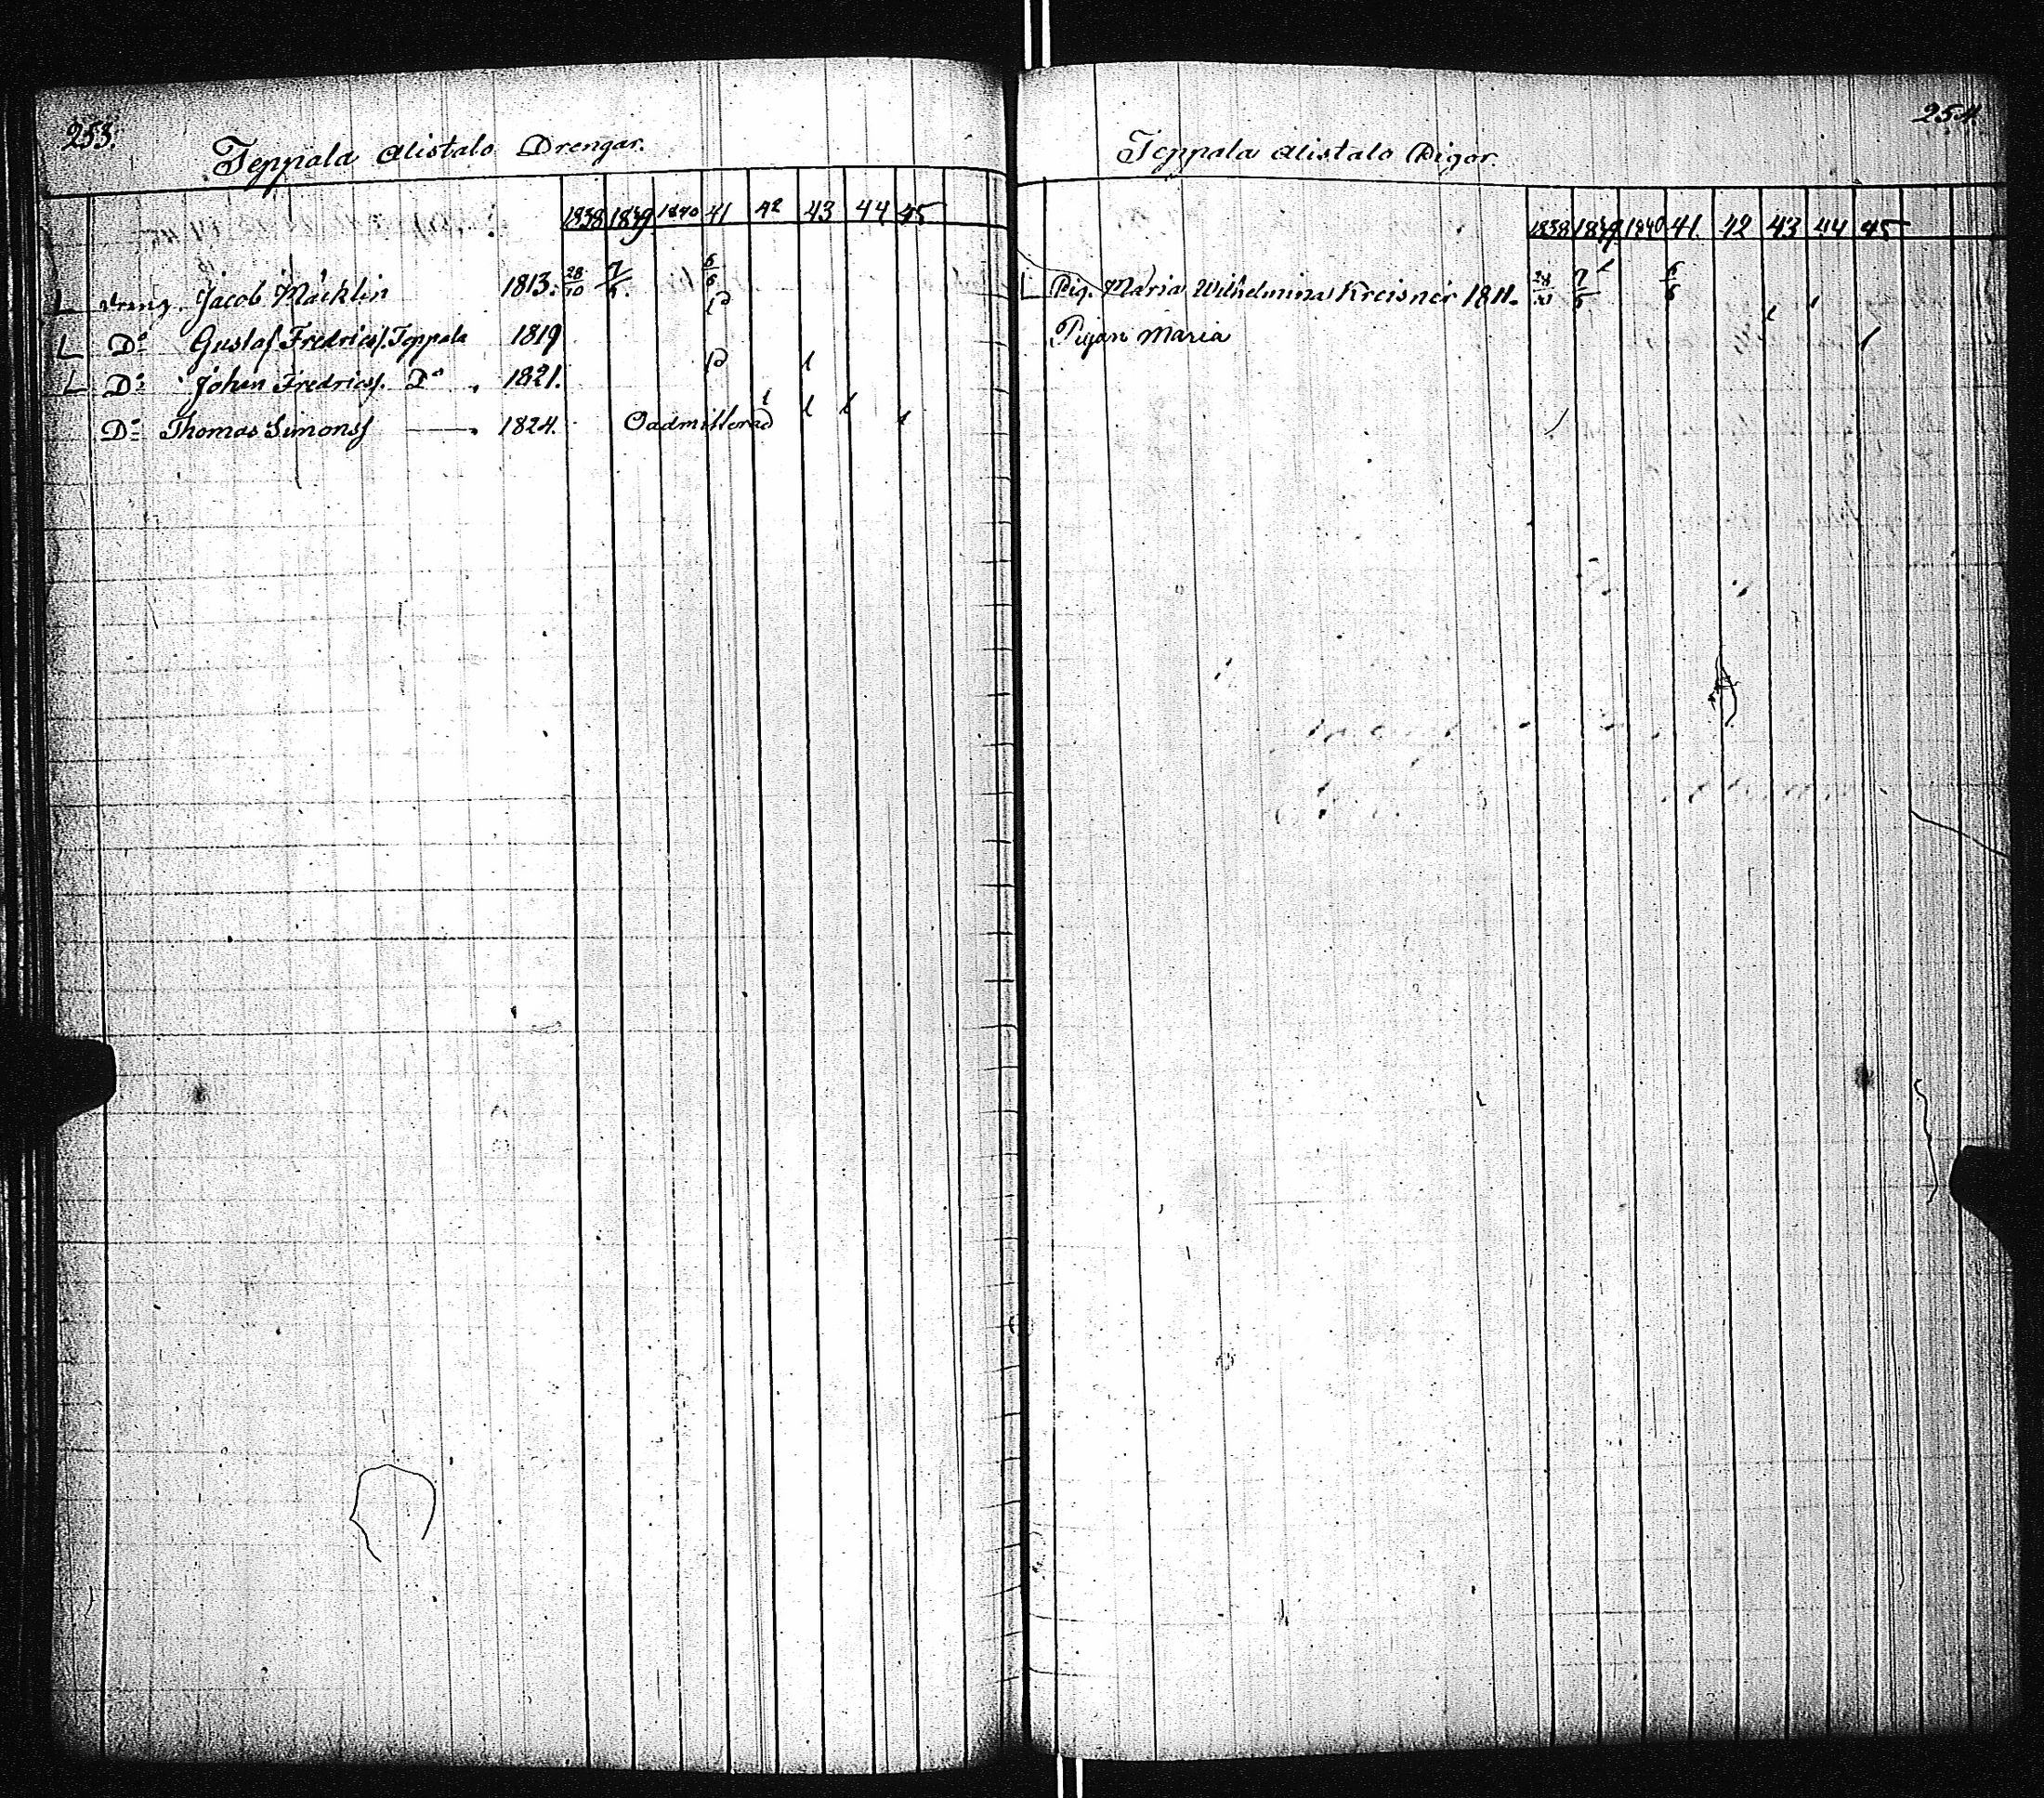 253.
Teppala Alistalo Drengar.
1838 1839 1840 41 42 43 44 45
L Dreng. Jacob Mäcklin 1813. 28/10 7/4 6/6
L Do Gustaf Fredricss. Teppala 1819 p
L Do Johan Fredricss. Do 1821. p l
Do Thomas Simonss 1824. Oadmitterad l l l l
254
Teppala Alistalo Pigor.
1838 1839 1840 41 42 43 44 45
L Pig. Maria Wilhelmina Kreisner 1811. 7/6 l 6/6
Pigan Maria l l l